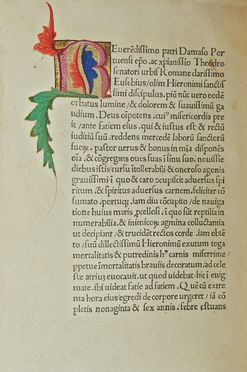 Reuerēdissimo patri Damaso Por
tuensi epō .ac xp̄ianissimo Theodo⁊o
senatori urbis Romane clarissimo
Eusebius/olim Hieronimi sanctis
simi discipulus. piū nūc uero eede
orbatus lumine/& dolorem & suauissimū ga
udium. Deus oīpotens ./cui⁹ misericordia pre
it/ante fatiem eius .qui & iustus est & rectū
iudiciū suū .reddens mercedē laborū sanctorū
suoꝝ. pastor uerus & bonus in mīa disposi
oīa/& congregans oues suas ī sinu suo. nouissie
diebus istis cursu ītollerabili & oneroso agonis
grauissimi quo & caro cupiscit aduersus spi
ritum/& spiritus aduersus carnem .feliciter cō
sumato .portuqꝫ .iam diu cōcupito/de nauiga
tione huius maris .
in quo sūt reptilia in
numerabilia/& inimicos & animalia occultant
ut decipiant/& trucidēt rectos corde .iam obtēto/
suū dillectissimū Hieronimū exutum toga
mortalitatis & putredinis h⁹ carnis miserrime/
ppetue īmortalitatis brauiis decoratum .ad celes
tre atriū euocauit .ut quod uidebat hic ī enig
mate .ibi uideat fatie ad fatiem . Que cū extre
ma hora eius egredi de corpore urgeret/iā cō
pletis nonaginta & sex annis .febre estuans